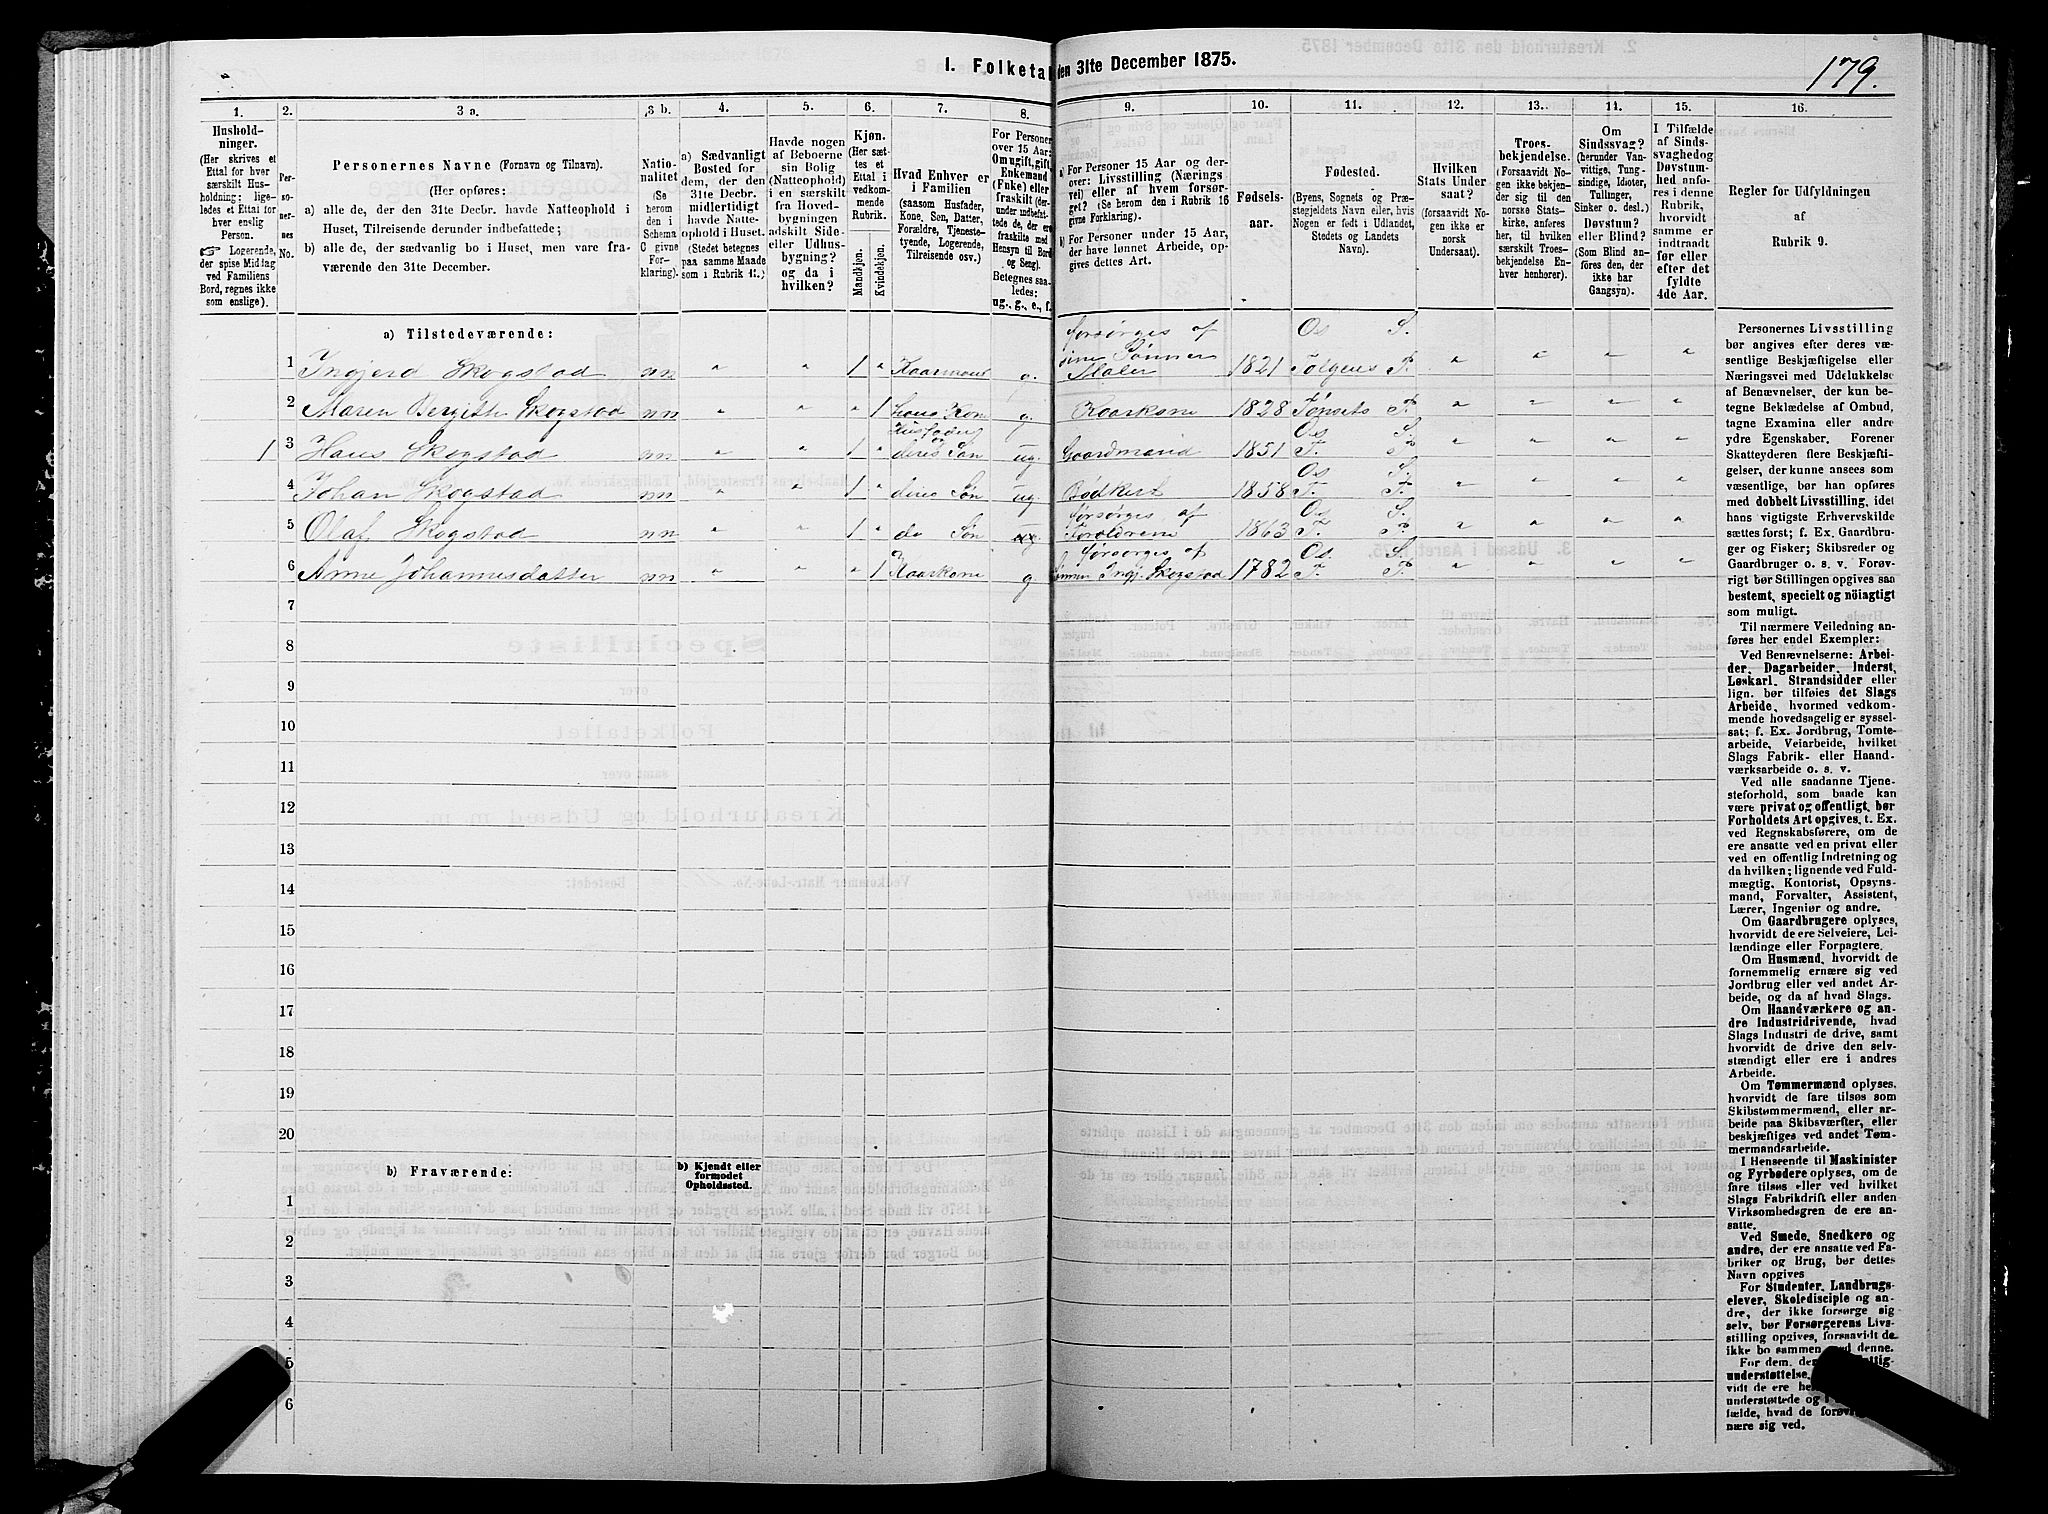 I. Folketal den 31te December 1875.
179.
1.
2.
3 a.
3 b.
4.
5.
6.
7.
8.
9.
10.
11.
12.
13.
14.
15.
16.
Hushold-
ninger.
(Her skrives et
Ettal for hver
særskilt Hus-
holdning: lige-
ledes et Ettal for
hver enslig
Person.
☞ Logerende,
der spise Middag
ved Familiens
Bord, regnes ikke
som enslige).
Per-
soner-
nes
No.
Personernes Navne (Fornavn og Tilnavn).
(Her opføres:
a) alle de, der den 31te Decbr. havde Natteophold i
Huset, Tilreisende derunder indbefattede;
b) alle de, der sædvanlig bo i Huset, men vare fra-
værende den 31te December.
Natio-
nalitet
(Se
herom
den i
Schema
C givne
For-
klaring).
a) Sædvanligt
Bosted for
dem, der den
31te Decbr.
midlertidigt
havde Natte-
ophold i Huset.
(Stedet betegnes
paa samme Maade
som i Rubrik 11.)
Havde nogen
af Beboerne
sin Bolig
(Natteophold)
i en særskilt
fra Hoved-
bygningen
adskilt Side-
eller Udhus-
bygning?
og da i
hvilken?
Kjøn.
(Her sæt-
tes et
Ettal i
vedkom-
mende
Rubrik.
Mandkjøn.
Kvindekjøn.
Hvad Enhver er
i Familien
(saasom Husfader,
Kone, Søn, Datter,
Forældre, Tjeneste-
tyende, Logerende,
Tilreisende osv.)
For Personer
over 15 Aar:
Om ugift, gift,
Enkemand
(Enke) eller
fraskilt (der-
under indbefat-
tede de, der ere
fraskilte med
Hensyn til Bord
og Seng).
Betegnes saa-
ledes:
ug., g., e., f.
a) For Personer 15 Aar og der-
over: Livsstilling (Nærings
vei) eller af hvem forsør-
get? (Se herom den i Rubrik 16
givne Forklaring).
b) For Personer under 15 Aar,
der have lønnet Arbeide, op-
gives dettes Art.
Fødsels-
aar.
Fødested.
(Byens, Sognets og Præ-
stegjeldets Navn eller, hvis
Nogen er født i Udlandet,
Stedets og Landets
Navn).
Hvilken
Stats Under
saat?
(forsaavidt No-
gen ikke er
norsk
Undersaat).
Troes-
bekjendelse.
(Forsaavidt No-
gen ikke bekjen-
der sig til den
norske Stats-
kirke, anføres
her, til hvilken
særskilt Troes-
bekjendelse En-
hver henhører).
Om
Sindssvag?
(herunder Van-
vittige, Tung-
sindige, Idioter,
Tullinger,
Sinker o. desl.)
Døvstum?
eller Blind?
(Som Blind an-
føres den, der
ikke har
Gangsyn).
I Tilfælde
af Sinds-
svaghed og
Døvstum-
hed anfø-
res i denne
Rubrik,
hvorvidt
samme er
indtraadt
før eller
efter det
fyldte
4de Aar.
Regler for Udfyldningen
af
Rubrik 9.
a) Tilstedeværende:
1 Ingjerd Skogstad nn " " 1 " Kaarmand g. forsørges af sine Sønner Maler 1821 Os S. Tolgens P. " " " "
2 Maren Bergitte Skogstad nn " " " 1 hans Kon g Kaarkone 1828 Tønsets P. " " " "
1 3 Hans Skogstad nn " " 1 " Husfader og deres Søn ug. Gaardmand 1851 Os S. T. P. " " " "
4 Johan Skogstad nn " " 1 deres Søn ug. Bødkert 1858 Os S. T. P. " " " "
5 Olaf Skogstad nn " " 1 " do Søn ug forsørges af Foroldrene 1863 Os S. T. P. " " " "
6 Anne Johannesdatter nn " " " 1 Kaarkone g forsørges af Sønnen Ingj. Skogstad 1782 Os. S. T. P. " " " "
7
8
9
10
11
12
13
14
15
16
17
18
19
20
b) Fraværende:
b) Kjendt eller
formodet
Opholdssted.
1
2
3
4
5
6
Personernes Livsstilling
bør angives efter deres væ-
sentlige Beskjæftigelse eller
Næringsvei med Udelukkelse
af Benævnelser, der kun be-
tegne Beklædelse af Ombud,
tagne Examina eller andre
ydre Egenskaber. Forener
Skatteyderen flere Beskjæfti-
gelser, der kunne ansees som
væsentlige, bør han opføres
med dobbelt Livsstilling, idet
hans vigtigste Erhvervskilde
sættes først; f. Ex. Gaardbru-
ger og Fisker; Skibsreder og
Gaardbruger o. s. v. Forøv-
rigt bør Stillingen opgives saa
bestemt, specielt og nöiagtigt
som muligt.
Til nærmere Veiledning an-
føres her endel Exempler:
Ved Benævnelserne: Arbei-
der, Dagarbeider, Inderst,
Løskarl, Strandsidder eller
lign. bør tilføies det Slags
Arbeide, hvormed vedkom-
mende hovedsagelig er syssel-
sat; f. Ex. Jordbrug, Tomte-
arbeide, Veiarbeide, hvilket
Slags Fabrik- eller Haand-
værksarbeide o. s. v.
Ved alle saadanne Tjene-
steforhold, som baade kan
være privat og offentligt, bør
Forholdets Art opgives, t. Ex.
ved Regnskabsførere, om de
ere ansatte ved en privat eller
ved en offentlig Indretning og
da hvilken; lignende ved Fuld-
mægtig, Kontorist, Opsyns-
mand, Forvalter, Assistent,
Lærer, Ingeniør og andre.
Om Gaardbrugere oplyses,
hvorvidt de ere Selveiere, Lei-
lændinge eller Forpagtere.
Om Husmænd, hvorvidt de
fornemmelig ernære sig ved
Jordbrug eller ved andet Ar-
beide, og da af hvad Slags.
Om Haandværkere og an-
dre Industridrivende, hvad
Slags Industri de drive, samt
hvorvidt de drive den selv-
stændigt eller ere i andres
Arbeide.
Om Tømmermænd oplyses,
hvorvidt de fare tilsøs som
Skibstømmermænd, eller ar-
beide paa Skibsværfter, eller
beskjæftiges ved andet Tøm-
mermandsarbeide.
I Henseende til Maskinister
og Fyrbødere oplyses, om de
fare tilsøs eller ved hvilket
Slags Fabrikdrift eller anden
Virksomhedsgren de ere an-
satte.
Ved Smede, Snedkere og
andre, der ere ansatte ved Fa-
briker og Brug, bør dettes
Navn opgives
For Studenter, Landbrugs-
elever, Skoledisciple og an-
dre, der ikke forsørge sig
selv, bør Forsørgerens Livs-
stilling opgives, forsaavidt de
ikke bo sammen med denne.
For dem, der
understøttelse,
vidt de ere
understøttede og i
fælde, hvad de
nære sig ved.